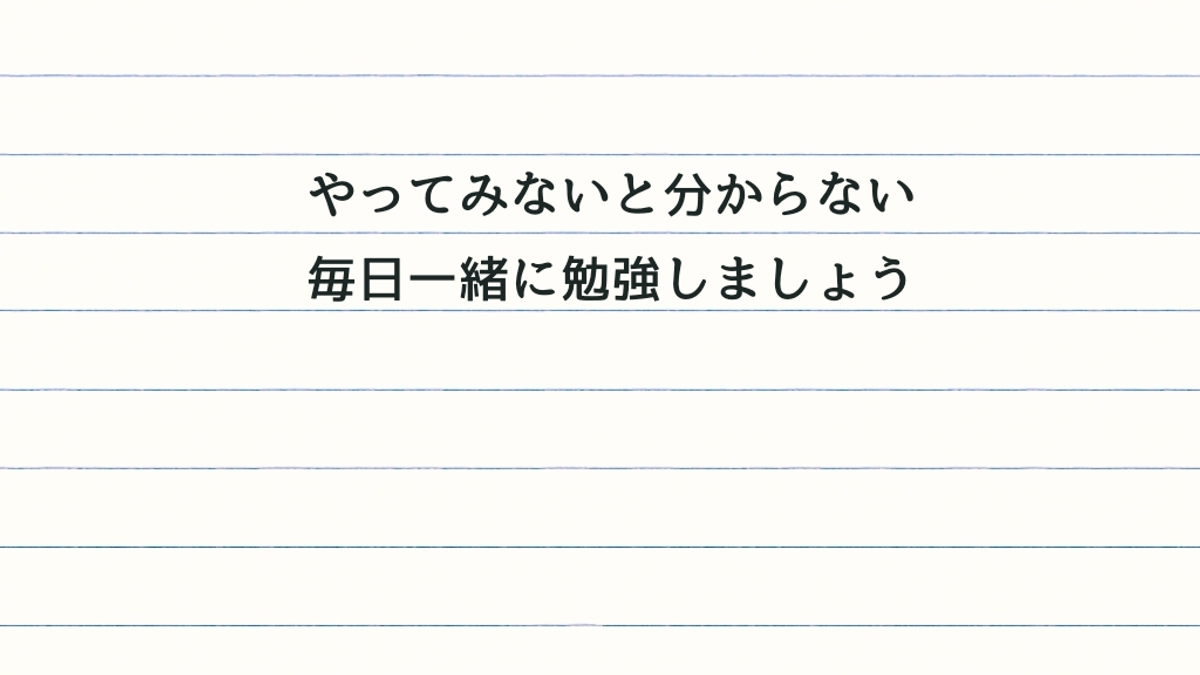 やってみないと分からない
毎日一緒に勉強しましょう